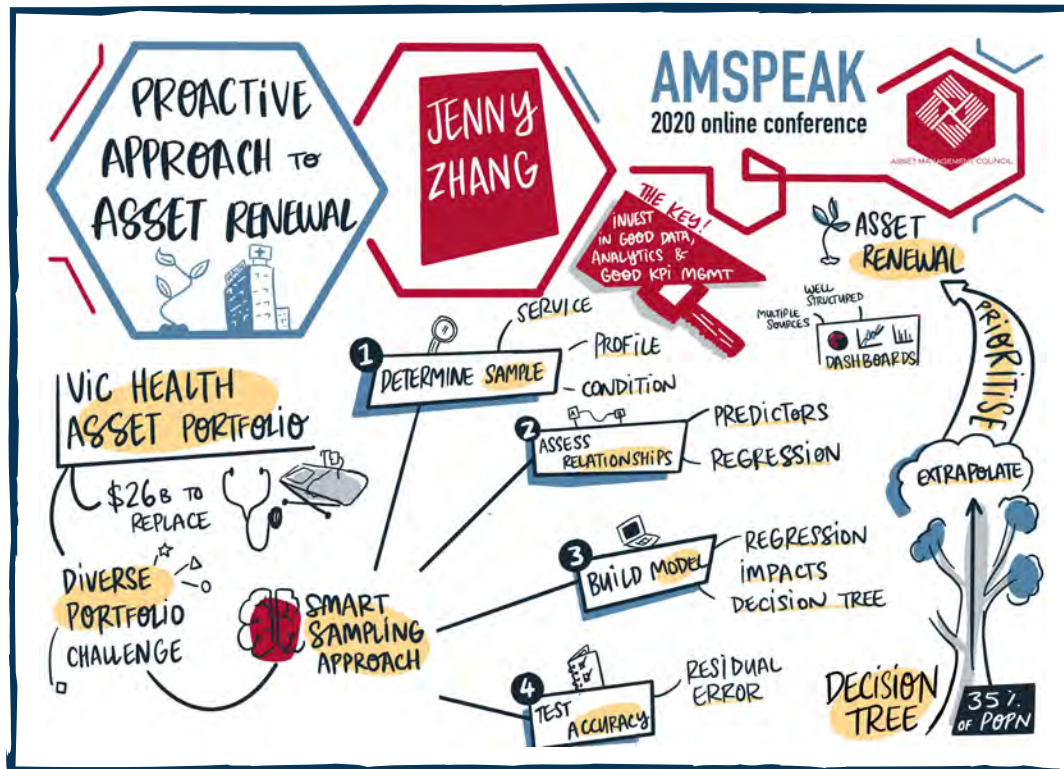 PROACTIVE
APPROACH TO
ASSET RENEWAL
JENNY
ZHANG
AMSPEAK
2020 online conference
ASSET MANAGEMENT COUNCIL
THE KEY!
INVEST
IN GOOD DATA,
ANALYTICS &
GOOD KPI MGMT
ASSET
RENEWAL
WELL
STRUCTURED
MULTIPLE
SOURCES
DASHBOARDS
PRIORITISE
EXTRAPOLATE
DECISION
TREE
35%
OF POPN
VIC HEALTH
ASSET PORTFOLIO
$26B TO
REPLACE
DIVERSE
PORTFOLIO
CHALLENGE
SMART
SAMPLING
APPROACH
1
DETERMINE SAMPLE
SERVICE
PROFILE
CONDITION
2
A B
ASSESS
RELATIONSHIPS
PREDICTORS
REGRESSION
3
BUILD MODEL
REGRESSION
IMPACTS
DECISION TREE
4
TEST
ACCURACY
RESIDUAL
ERROR